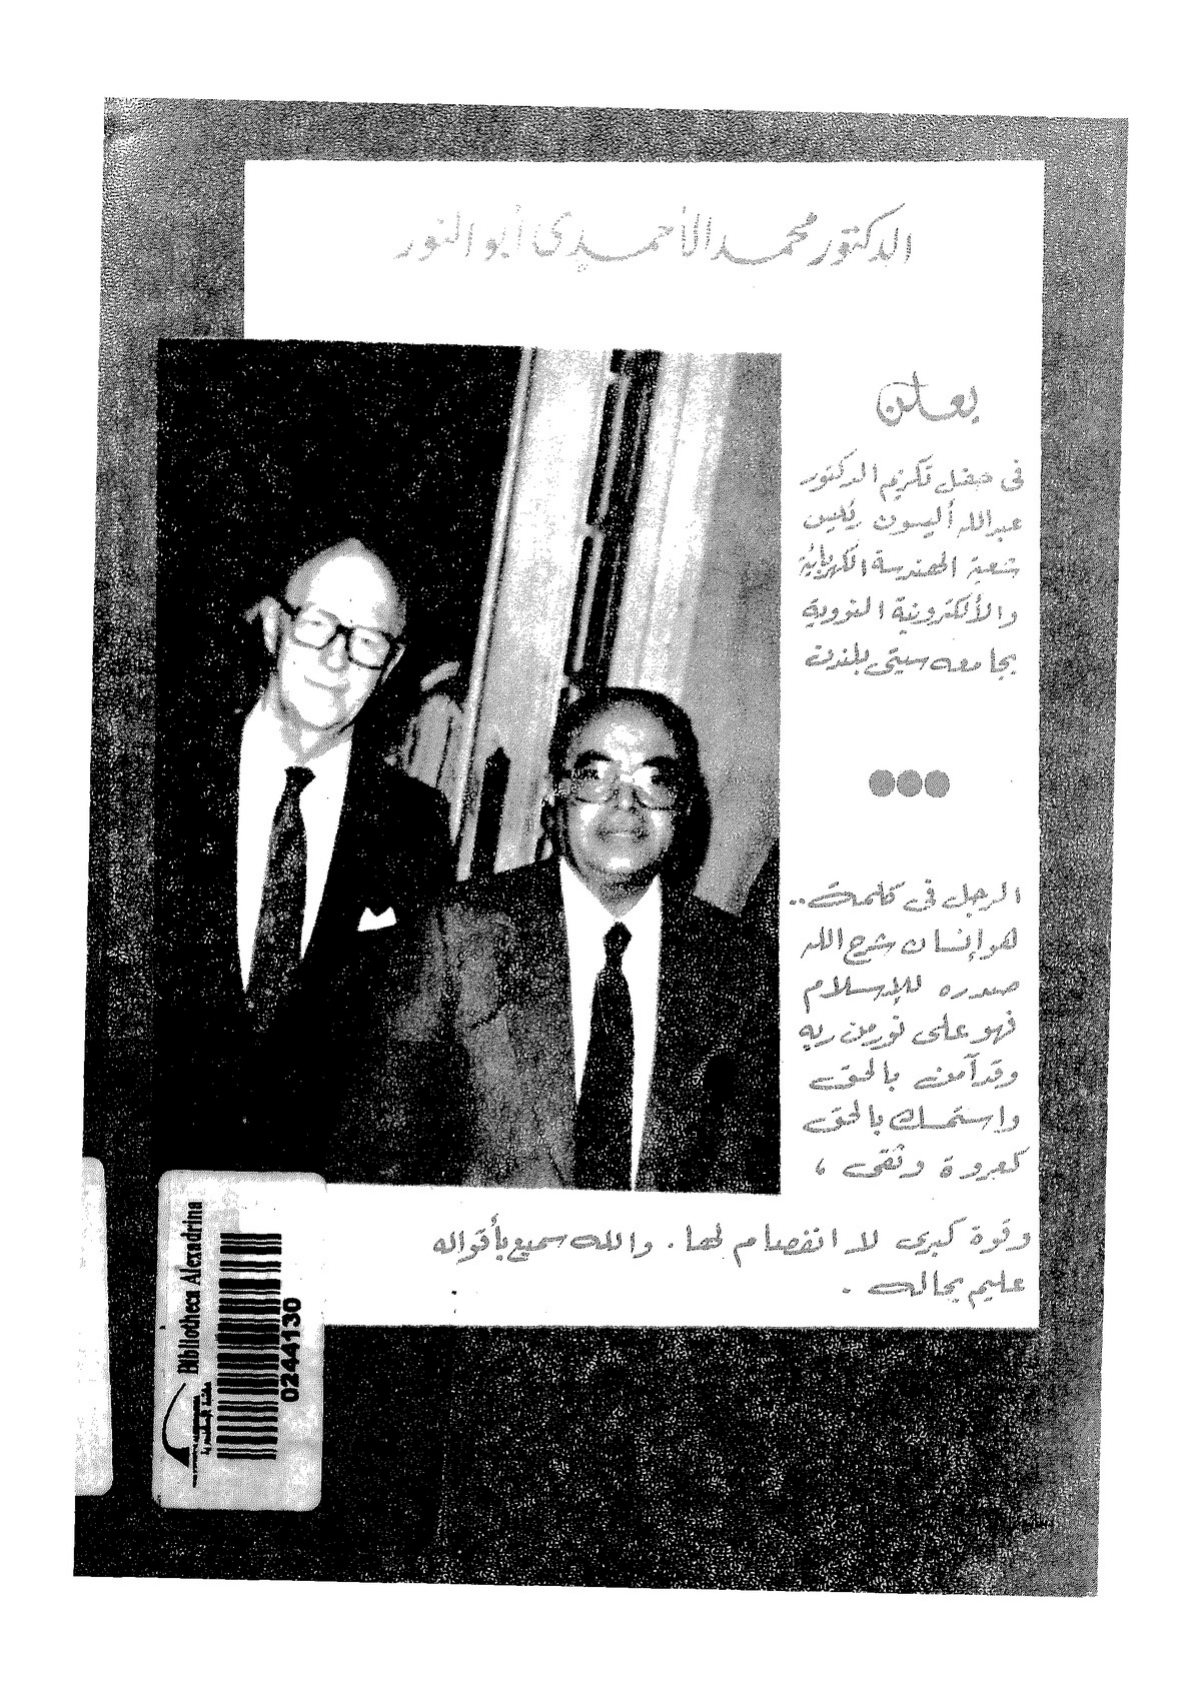 الدكتور محمد الأحمدى أبو النور
يعلن
فى حفل تكريم الدكتور
عبدالله أليسون رئيس
شعبة الهندسة الكهربائية
والألكترونية النووية
بجامعه سيتى بلندن
الرجل فى كلمة..
هو إنسان شرح الله
صدره للإسلام
فهو على نور من ربه
وقد آمن بالحق
واستمسك بالحق
كعروة وثقى ،
وقوة كبرى لا انفصام لها . والله سميع بأقواله
عليم بحاله .
Bibliotheca Alexandrina
0244130